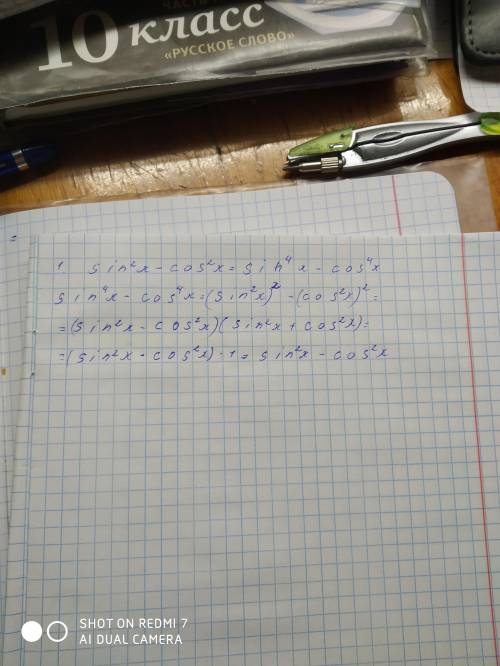 ЧАСТЬ
10 класс
«РУССКОЕ СЛОВО»
=
1. sin²x - cos²x = sin⁴x - cos⁴x
sin⁴x - cos⁴x = (sin²x)² - (cos²x)² =
= (sin²x - cos²x)(sin²x + cos²x) =
= (sin²x - cos²x) · 1 = sin²x - cos²x
SHOT ON REDMI 7
AI DUAL CAMERA